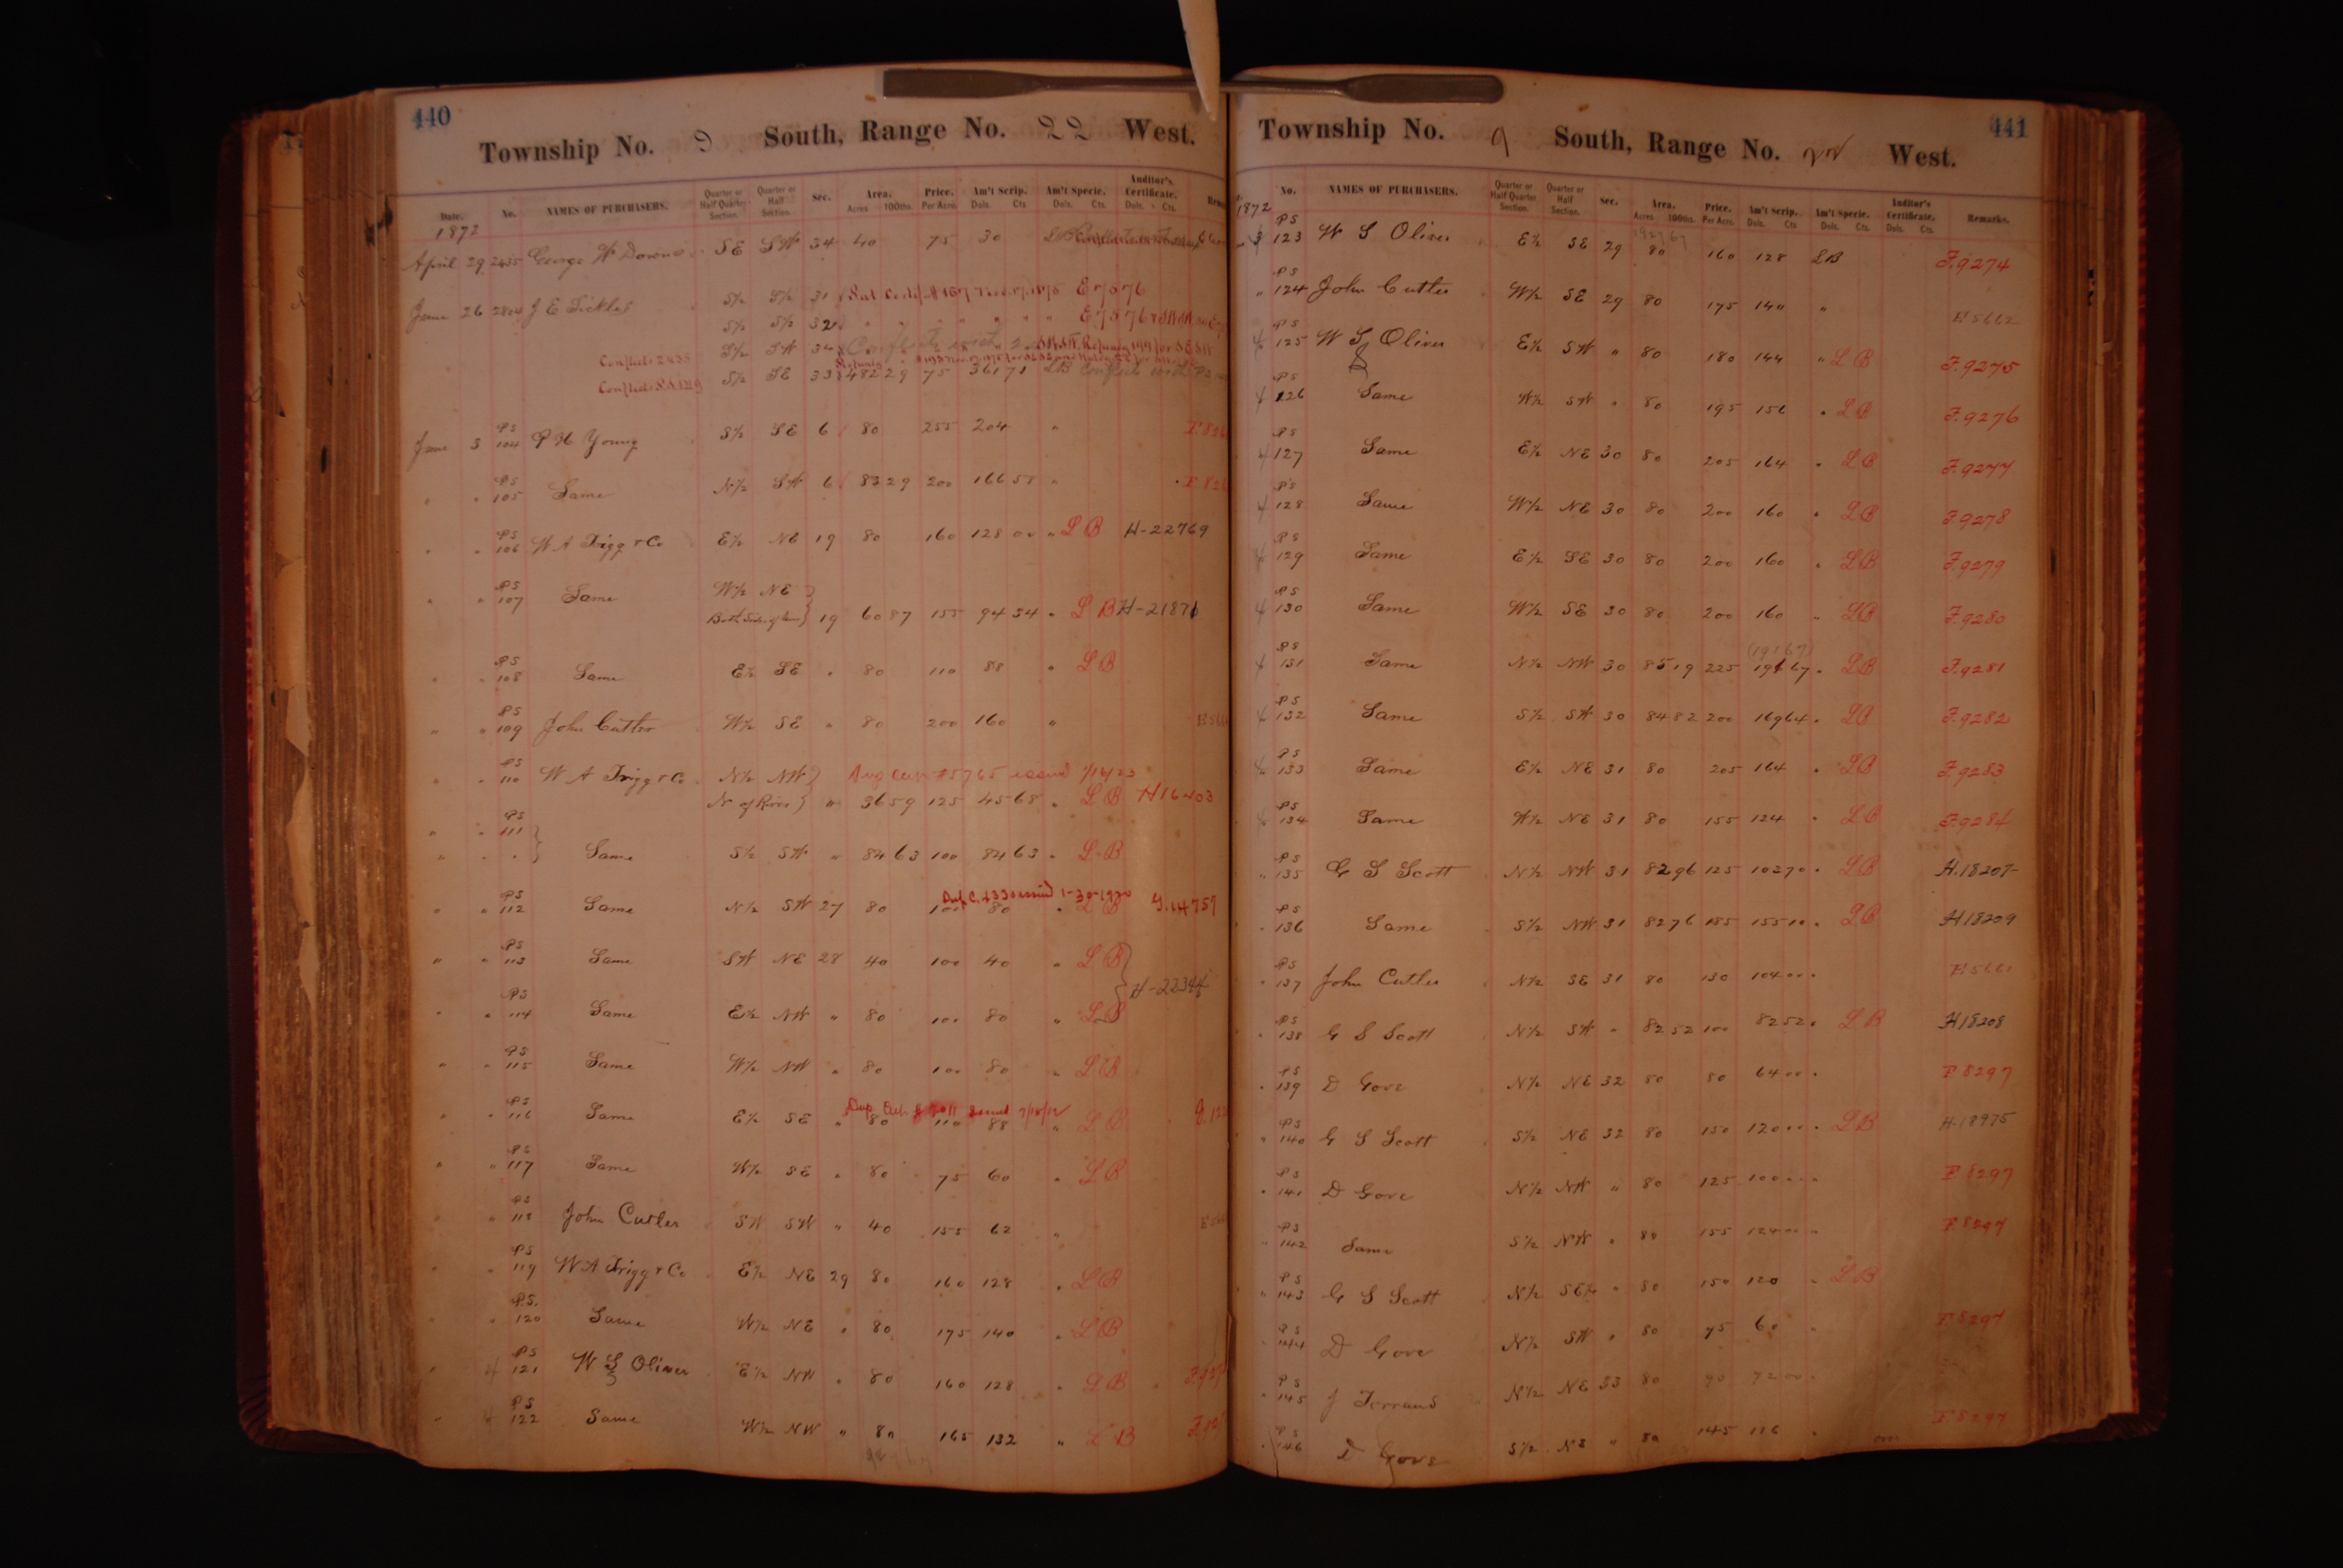 440
Township No. 9 South, Range No. 22 West.
Date. No. NAMES OF PURCHASERS. Quarter or Half Quarter Section. Quarter or Half Section. Sec. Area. Acres 100ths. Price. Per Acre. Am't Scrip. Dols. Cts. Am't Specie. Dols. Cts. Auditor's Certificate. Dols. Cts.
1872
April 29 2435 George W SE SW 34 40 75 30
June 26 J E Sickles S½ S½ 31 E7576
S½ S½ 32 " " " " " E7576
S½ SW 34 Conflicts with
Conflicts 2435
Conflicts S½ SE 33 482 29 75 361 71 LB Conflicts with
June 3 PS 104 P H Young S½ SE 6 80 255 204 "
" " PS 105 Same N½ SW 6 83 29 200 166 58 "
" " PS 106 W A Trigg & Co E½ NE 19 80 160 128 00 " LB H-22769
" " PS 107 Same W½ NE
Both Sides of River 19 60 87 155 94 34 " LB H-21871
" " PS 108 Same E½ SE " 80 110 88 " LB
" " PS 109 John Cutler W½ SE " 80 200 160 "
" " PS 110 W A Trigg & Co N½ NW Dup Cert #5765 issued 1/16/23
N of River " 36 59 125 45 68 " LB H16403
" " PS 111
" " " Same S½ SW " 84 63 100 84 63 " LB
1-30-1920
" " PS 112 Same N½ SW 27 80 100 80 " LB G.14757
" " PS 113 Same SW NE 28 40 100 40 " LB
H-22344
" " PS 114 Same E½ NW " 80 100 80 " LB
" " PS 115 Same W½ NW " 80 100 80 " LB
" " PS 116 Same E½ SE " 80 110 88 " LB
" " PS 117 Same W½ SE " 80 75 60 " LB
" " PS 118 John Cutler SW SW " 40 155 62 "
" " PS 119 W A Trigg & Co E½ NE 29 80 160 128 " LB
" " P.S. 120 Same W½ NE " 80 175 140 " LB
" 4 PS 121 W S Oliver E½ NW " 80 160 128 " LB
" 4 PS 122 Same W½ NW " 80 165 132 " LB
441
Township No. 9 South, Range No. 22 West.
No. NAMES OF PURCHASERS. Quarter or Half Quarter Section. Quarter or Half Section. Sec. Area. Acres 100ths. Price. Per Acre. Am't Scrip. Dols. Cts Am't Specie. Dols. Cts. Auditor's Certificate. Dols. Cts. Remarks.
1872
3 PS 123 W S Oliver E½ SE 29 80 160 128 LB F.9274
" PS 124 John Cutler W½ SE 29 80 175 140 " E5662
4 PS 125 W S Oliver E½ SW " 80 180 144 " LB F.9275
4 PS 126 Same W½ SW " 80 195 156 " LB F.9276
4 PS 127 Same E½ NE 30 80 205 164 " LB F.9277
4 PS 128 Same W½ NE 30 80 200 160 " LB F.9278
4 PS 129 Same E½ SE 30 80 200 160 " LB F.9279
4 PS 130 Same W½ SE 30 80 200 160 " LB F.9280
(191 67)
4 PS 131 Same N½ NW 30 85 19 225 191 67 " LB F.9281
4 PS 132 Same S½ SW 30 84 82 200 169 64 " LB F.9282
4 PS 133 Same E½ NE 31 80 205 164 " LB F.9283
4 PS 134 Same W½ NE 31 80 155 124 " LB F.9284
" PS 135 G S Scott N½ NW 31 82 96 125 102 70 " LB H.18207
" PS 136 Same S½ NW 31 82 76 185 155 10 " LB H18209
" PS 137 John Cutler N½ SE 31 80 130 104 00 " E5661
" PS 138 G S Scott N½ SW " 82 52 100 82 52 " LB H18208
" PS 139 D Gove N½ NE 32 80 80 64 00 " F 8297
" PS 140 G S Scott S½ NE 32 80 150 120 00 " LB H-18975
" PS 141 D Gove N½ NW " 80 125 100 00 " F 8297
" PS 142 Same S½ NW " 80 155 124 00 " F 8297
" PS 143 G S Scott N½ SE¼ " 80 150 120 " LB
" PS 144 D Gove N½ SW " 80 75 60 " F 8297
" PS 145 J Ferrand N½ NE 33 80 90 72 00 "
" PS 146 D Gove S½ NE " 80 145 116 " F 8297
over